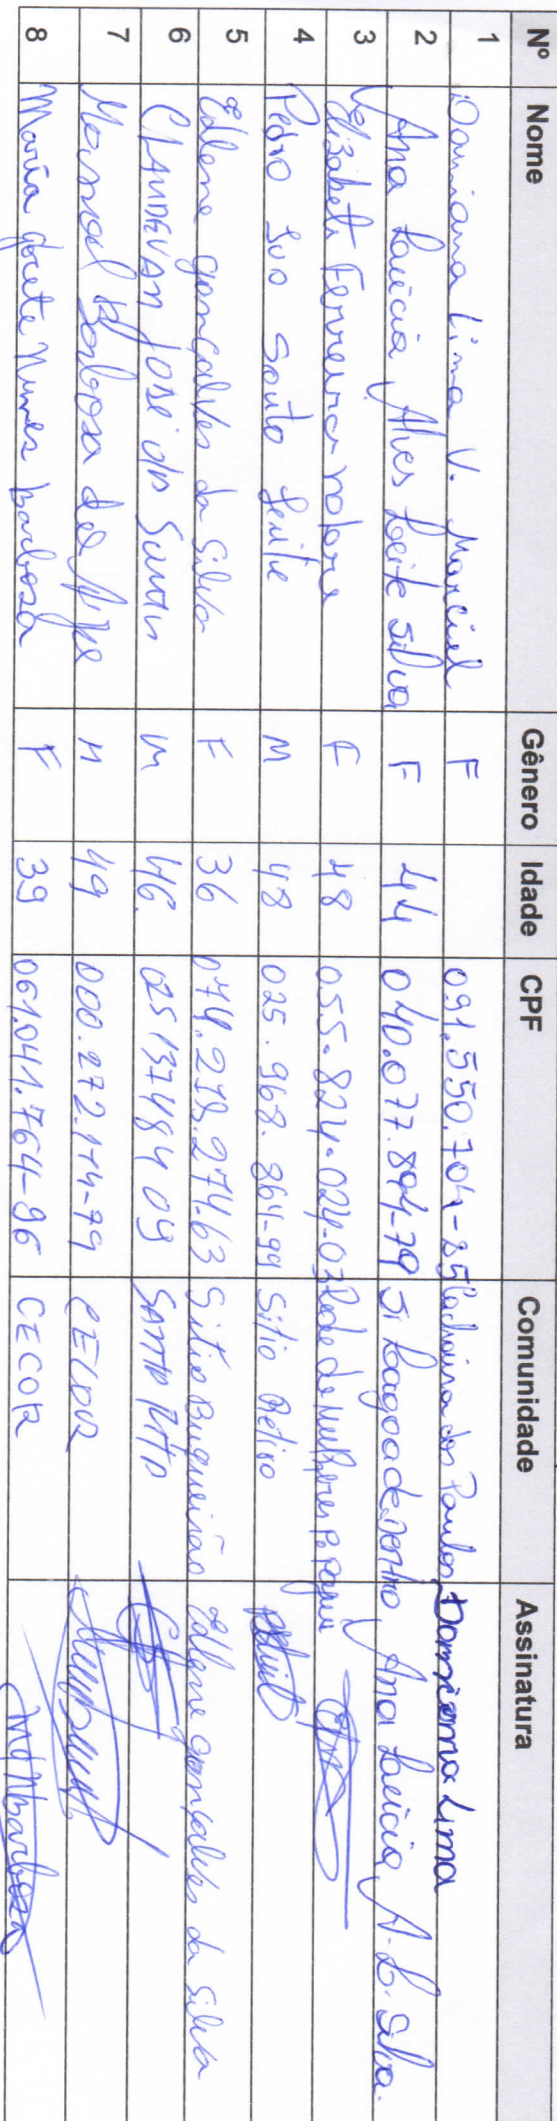 Nº Nome Gênero Idade CPF Comunidade Assinatura
1 Damiana Lima V. Marciel F 091.550.704-85 Cachoeira dos Paulos Damiana Lima
2 Ana Lucicia Alves Leite Silva F 44 040.077.894-79 Si Lagoa de Dentro Ana Lucicia A. L. Silva.
3 Elizabeth Ferreira F 48 055.824.024-03 Rede de Mulheres P. Pajeú
4 Pedro Souto Leite M 48 025.968.864-99 Sitio Retiro
5 Edlene Gonçalves da Silva F 36 074.278.274.63 Sitio Buqueirão Edlene Gonçalves da Silva
6 CLAUDEVAN José do M 46. 025137484 09 SANTA RITA
7 Manoel Barbosa M 49 000.272.114-79 CECOR
8 Maria Gorete Nunes Barboza F 39 061.041.764-96 CECOR MGNBarboza